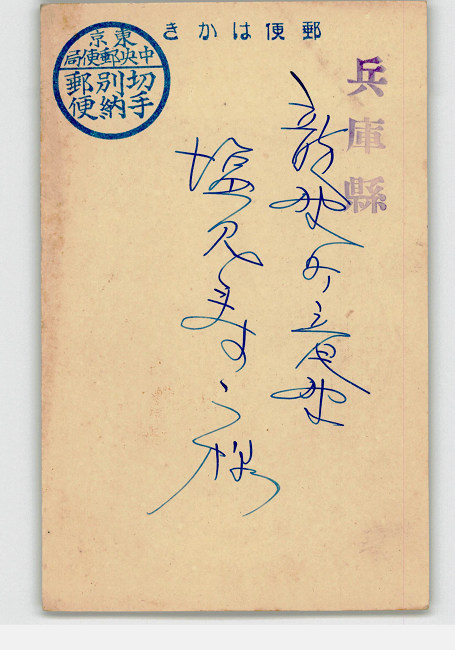 郵便はかき
東京
中央郵便局
切手
別納
郵便
兵庫縣
龍野町
塩見ます 様